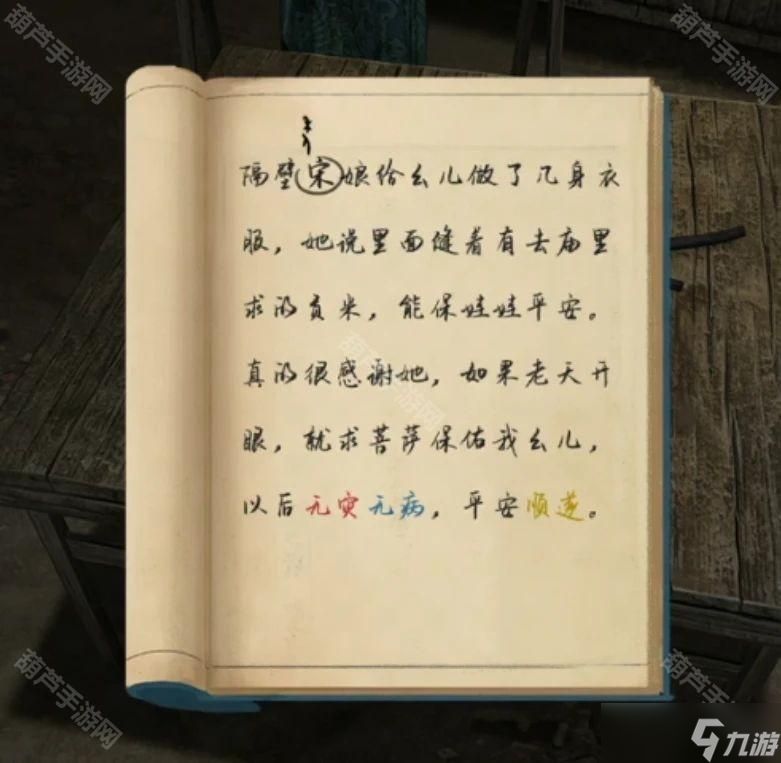 隔壁宋娘给幺儿做了几身衣
服，她说里面缝着有去庙里
求的贡米，能保娃娃平安。
真的很感谢她，如果老天开
眼，就求菩萨保佑我幺儿，
以后无灾无病，平安顺遂。
葫芦手游网
葫芦手游网
葫芦手游网
葫芦手游网
葫芦手游网
九游